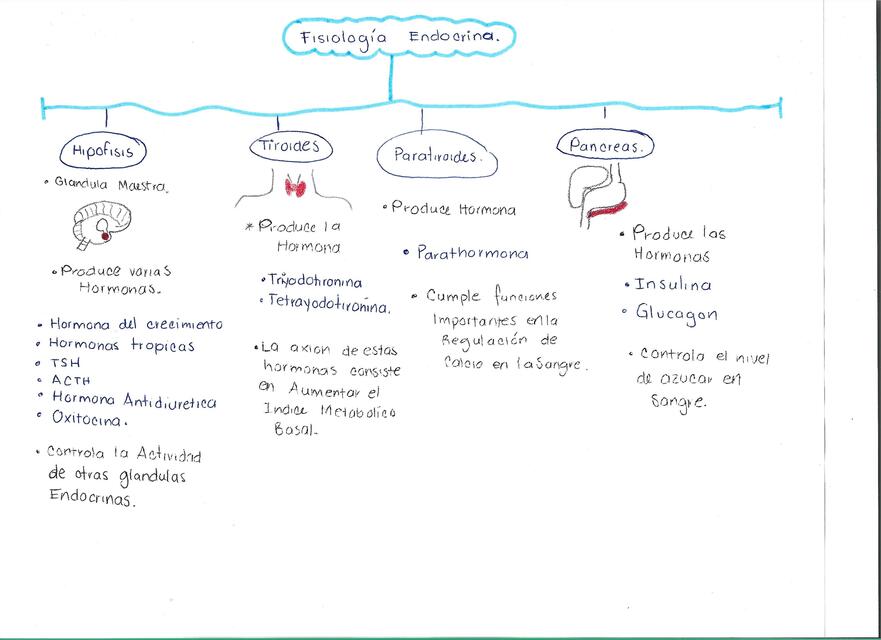 Fisiología Endocrina.
Hipofisis
• Glandula Maestra.
• Produce varias
Hormonas.
• Hormona del crecimiento
• Hormonas tropicas
• TSH
• ACTH
• Hormona Antidiuretica
• Oxitocina.
• Controla la Actividad
de otras glandulas
Endocrinas.
Tiroides
* Produce la
Hormona
• Triyodotironina
• Tetrayodotironina.
• La axion de estas
hormonas consiste
en Aumentar el
Indice Metabolico
Basal.
Paratiroides.
• Produce Hormona
• Parathormona
• Cumple funciones
Importantes en la
Regulación de
Calcio en la Sangre.
Pancreas.
• Produce las
Hormonas
• Insulina
• Glucagon
• Controla el nivel
de azucar en
Sangre.